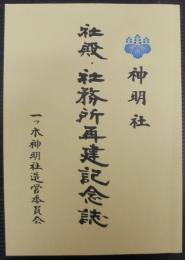 神明社
社殿・社務所再建記念誌
一ッ水神明社造営委員会